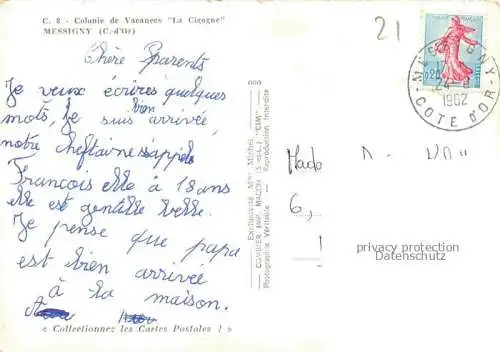 C. 8 - Colonie de Vacances "La Cigogne"
MESSIGNY (C.-d'Or)
21
Chère Parents
Je veux écrires quelques
mots, Je suis bien arrivée
notre cheftainessappele
François elle à 18 ans
elle est gentille belle.
Je pense que papa
est bien arrivée
à la maison.
« Collectionnez les Cartes Postales ! »
Exclusivité Mme Michel
COMBIER IMP. MACON (S.-&-L.) "CIM"
Photographie Véritable - Reproduction Interdite
0,20
24 -
1962
COTE D'OR
6,
privacy protection
Datenschutz